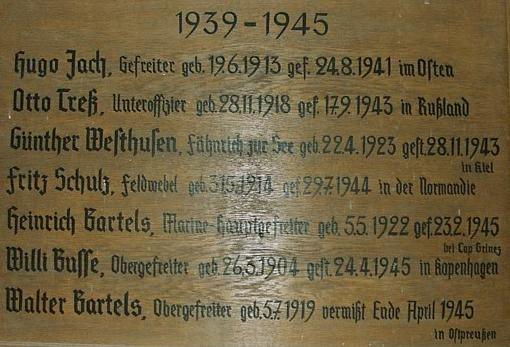 1939-1945
Hugo Jach, Gefreiter geb. 19.6.1913 gef. 24.8.1941 im Osten
Otto Treß, Unteroffizier geb. 28.11.1918 gef. 17.9.1943 in Rußland
Günther Westhusen, Fähnrich zur See geb. 22.4.1923 gest. 28.11.1943
in Kiel
Fritz Schulz, Feldwebel geb. 31.5.1914 gef. 29.7.1944 in der Normandie
Heinrich Bartels, Marine-Hauptgefreiter geb. 5.5.1922 gef. 23.2.1945
bei Cap Grinez
Willi Busse, Obergefreiter geb. 26.3.1904 gest. 24.4.1945 in Kopenhagen
Walter Bartels, Obergefreiter geb. 5.7.1919 vermißt Ende April 1945
in Ostpreußen